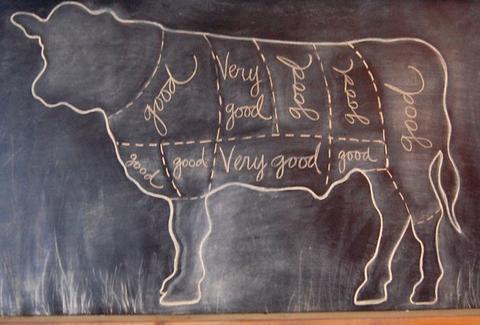 good
Very
good
good
good
good
good
good
Very good
good